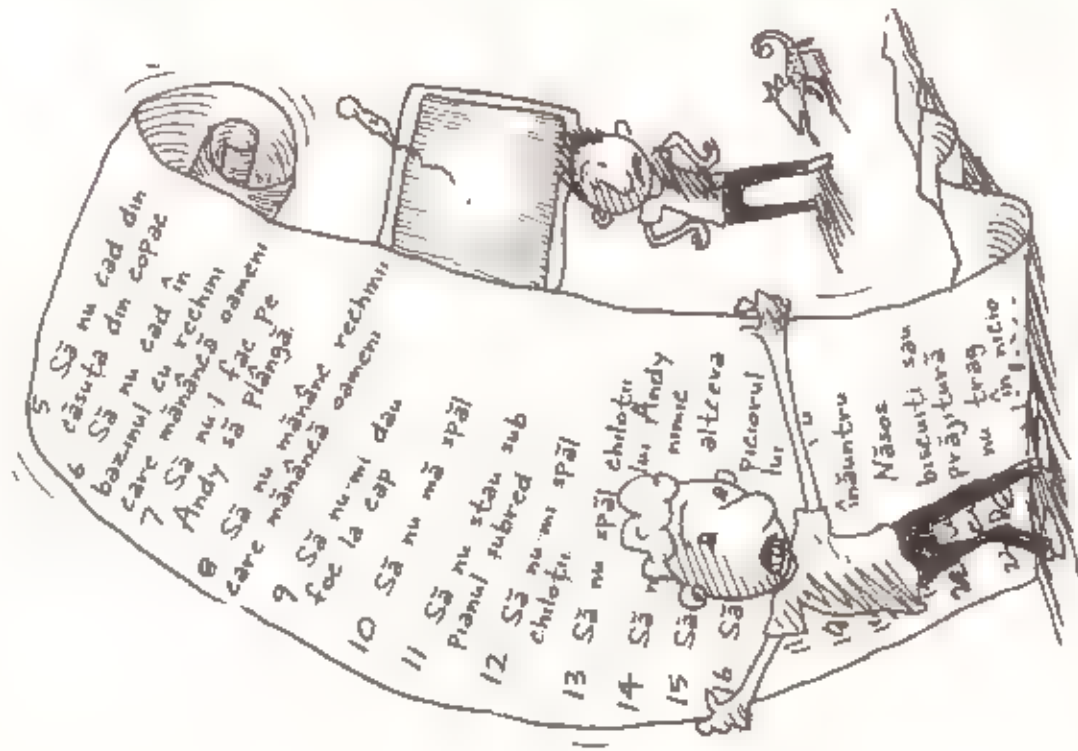 5 Să nu cad din
căsuța din copac
6 Să nu cad în
bazinul cu rechini
care mănâncă oameni
7 Să nu-l fac pe
Andy să plângă.
8 Să nu mănânc rechinii
care mănâncă oameni
9 Să nu-mi dau
foc la cap
10 Să nu mă spăl
11 Să nu stau sub
pianul subred
12 Să nu mi spăl
chiloții
13 Să nu spăl chiloții
14 Să lui Andy
15 Să nimic
altceva
16 Să Piciorul
lui
înăuntru
Năsos
biscuiti sau
prăjtură
nu trag
în nicio